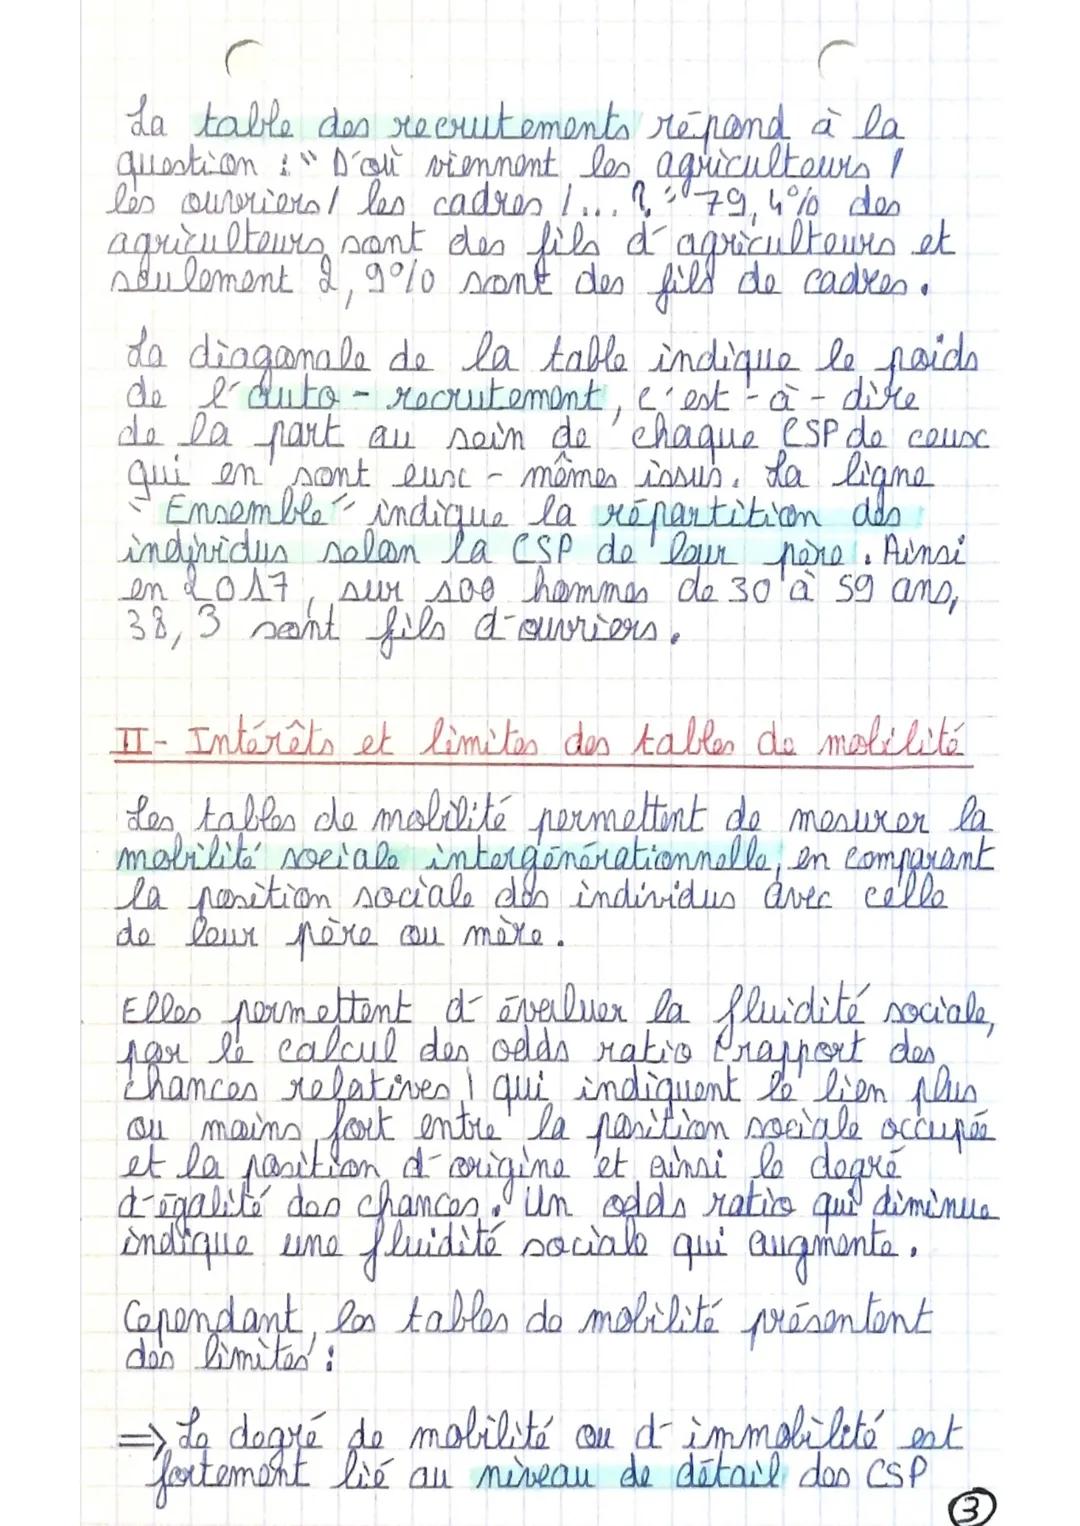 La table des recrutements répond à la
question : " D'où viennent les agriculteurs /
les ouvriers / les cadres /... ? " 79,4% des
agriculteurs sont des fils d'agriculteurs et
seulement 2,9% sont des fils de cadres.
La diagonale de la table indique le poids
de l'auto-recrutement, c'est-à-dire
de la part au sein de chaque CSP de ceux
qui en sont eux-mêmes issus. La ligne
"Ensemble" indique la répartition des
individus selon la CSP de leur père. Ainsi
en 2017, sur 100 hommes de 30 à 59 ans,
38,3 sont fils d'ouvriers.
II- Intérêts et limites des tables de mobilité
Les tables de mobilité permettent de mesurer la
mobilité sociale intergénérationnelle, en comparant
la position sociale des individus avec celle
de leur père ou mère.
Elles permettent d'évaluer la fluidité sociale,
par le calcul des odds ratio (rapport des
chances relatives) qui indiquent le lien plus
ou moins fort entre la position sociale occupée
et la position d'origine et ainsi le degré
d'égalité des chances. Un odds ratio qui diminue
indique une fluidité sociale qui augmente.
Cependant, les tables de mobilité présentent
des limites :
⇒ Le degré de mobilité ou d'immobilité est
fortement lié au niveau de détail des CSP
3